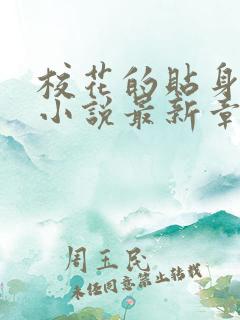 校花的贴身
小说最新章
周玉民
未经同意禁止转载